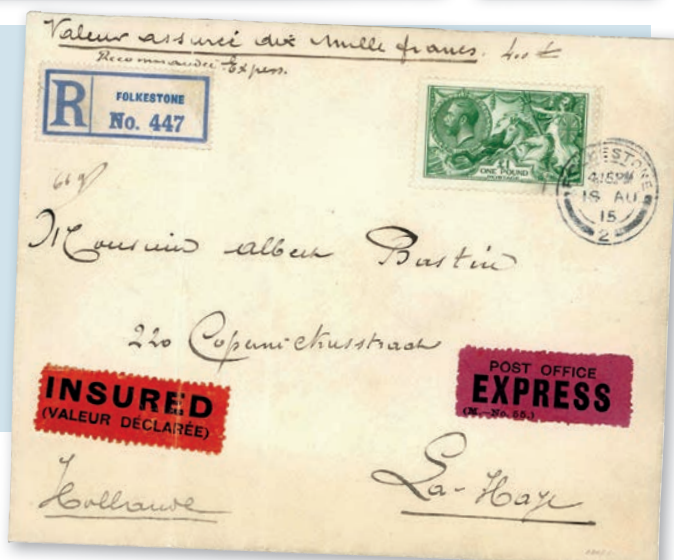 Valeur assurée dix mille francs. 400 £
Recommandée Express.
R
FOLKESTONE
No. 447
£1
ONE POUND
POSTAGE
FOLKESTONE
4.15PM
18 AU
15
2
66g
Monsieur Albert Bastin
220 Copernickusstraat
INSURED
(VALEUR DÉCLARÉE)
POST OFFICE
EXPRESS
La-Haye
Hollande